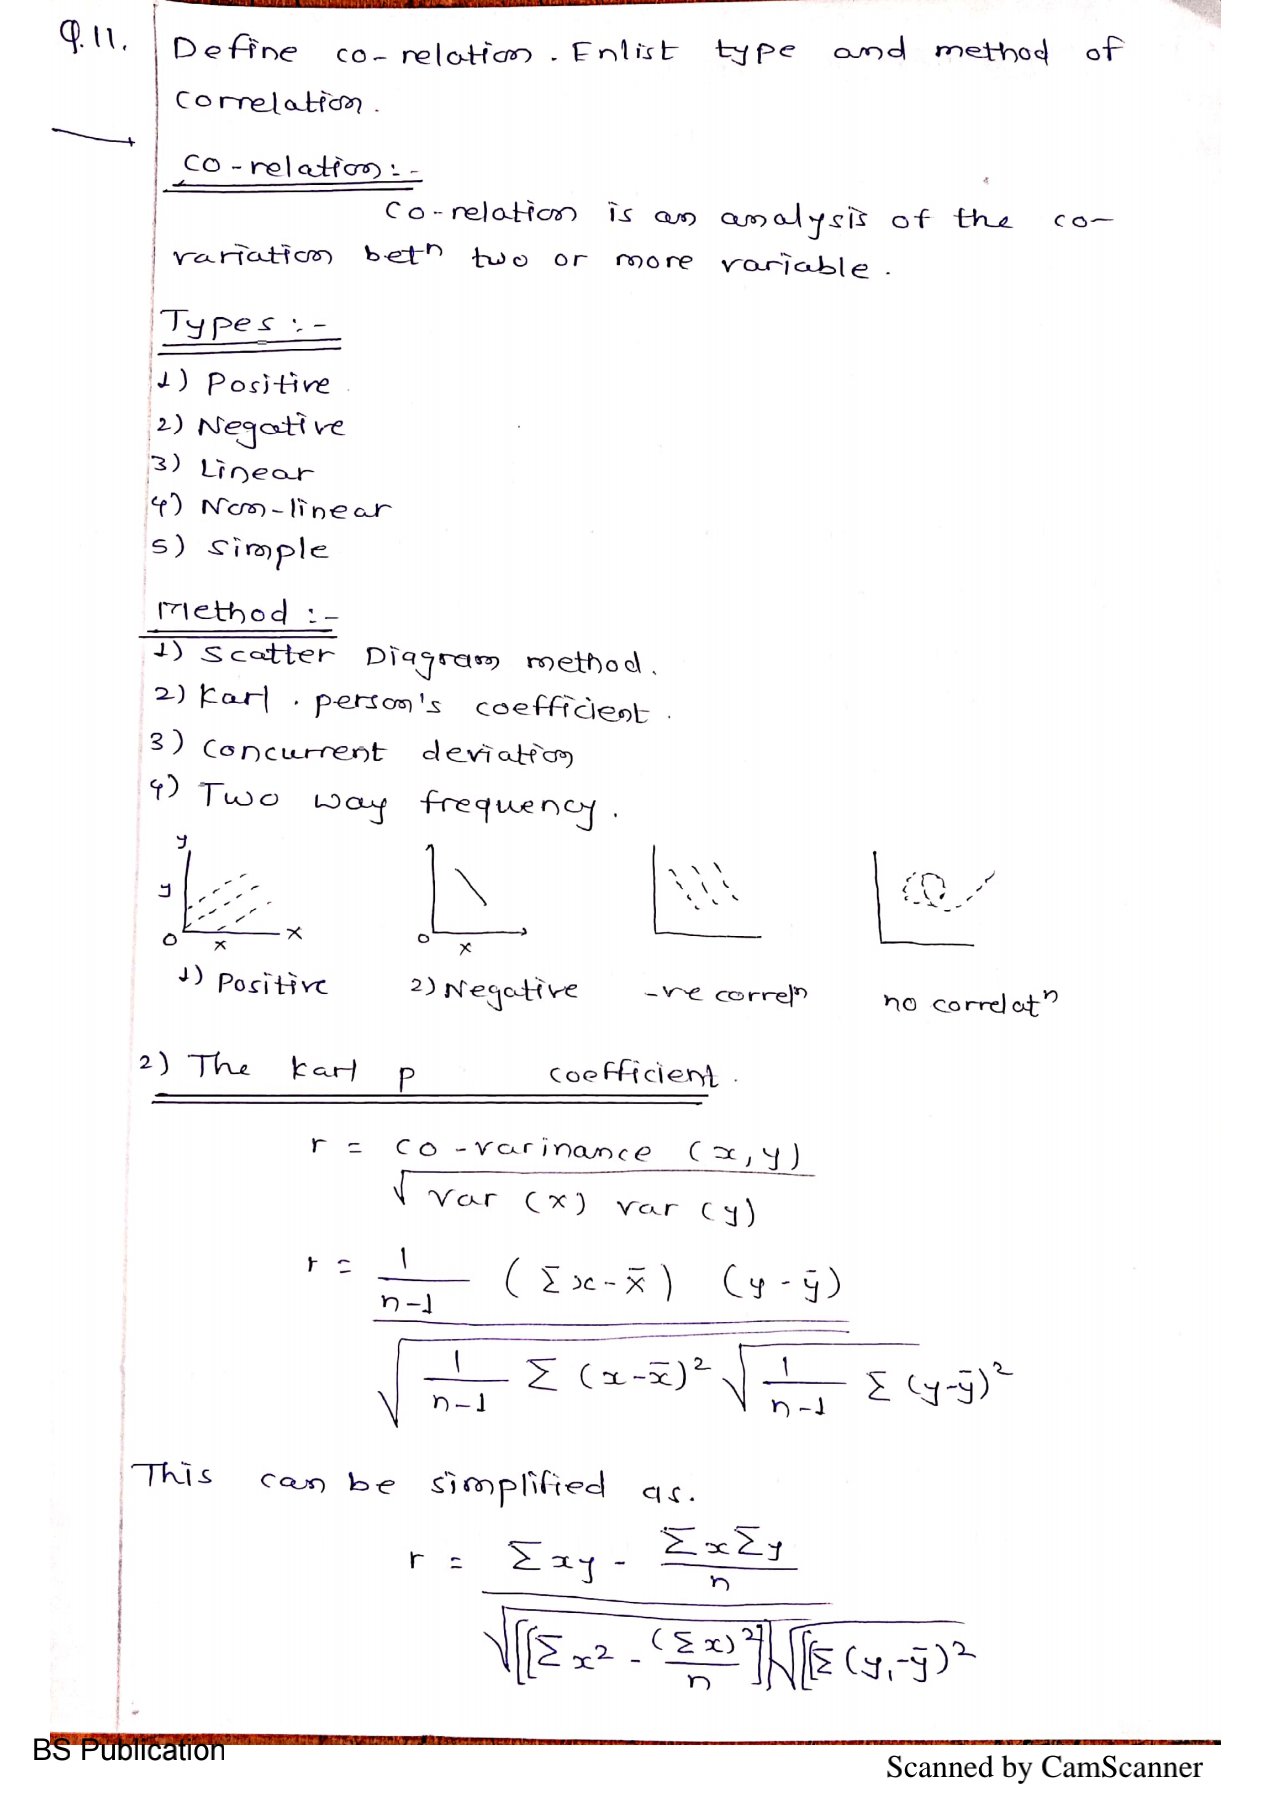 Q.11. Define co-relation. Enlist type and method of
correlation.
co-relation:-
co-relation is an analysis of the co-
variation betⁿ two or more variable.
Types :-
1) Positive
2) Negative
3) Linear
4) Non-linear
5) simple
Method :-
1) scatter Diagram method.
2) Karl . person's coefficient.
3) concurrent deviation
4) Two way frequency.
y
y
o x x
o x
1) Positive 2) Negative -ve correlⁿ no correlatⁿ
2) The karl p coefficient.
r = co-varinance (x,y)
√ var (x) var (y)
r = 1/n-1 (Σx-x̄) (y-ȳ)
√ 1/n-1 Σ (x-x̄)² √ 1/n-1 Σ (y-ȳ)²
This can be simplified as.
r = Σxy - ΣxΣy/n
√[[Σx² - (Σx)²/n]] √[[Σ(y,-ȳ)²
BS Publication
Scanned by CamScanner